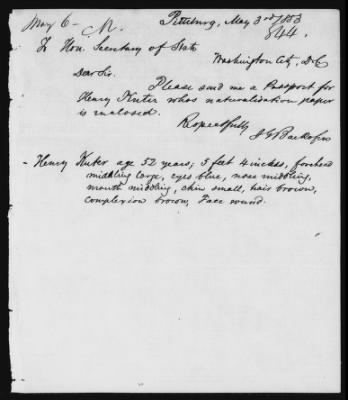 May 6 - M. Pittsburg, May 3rd/853
844.
To Hon. Secretary of State
Washington City, D.C
Dear Sir.
Please send me a Passport for
Henry Kuter whos naturalization paper
is inclosed.
Respectfully
J G Backofen
- Henry Kuter age 52 years; 5 feet 4 inches, forehead
middling large, eyes blue, nose middling,
mouth middling, chin small, hair brown,
complexion brown, Face round.